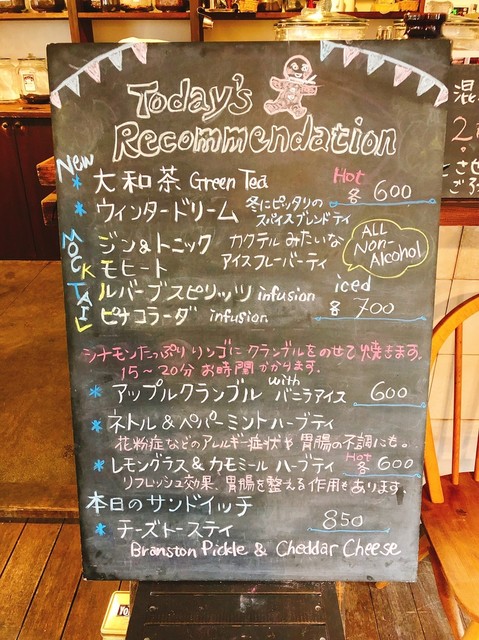 Today's
Recommendation
New
大和茶 Green Tea
Hot
各 600
ウィンタードリーム 冬にピッタリの
スパイスブレンドティ
MOCKTAIL
ジン&トニック カクテルみたいな
アイスフレーバーティ
ALL
Non-
Alcohol
モヒート
iced
ルバーブスピリッツ infusion
各 700
ピナコラーダ infusion
シナモンたっぷりリンゴにクランブルをのせて焼きます。
15〜20分お時間かかります。
アップルクランブル with バニラアイス 600
ネトル&ペパーミントハーブティ
花粉症などのアレルギー症状や胃腸の不調にも。
レモングラス&カモミールハーブティ Hot 各 600
リフレッシュ効果、胃腸を整える作用もあります。
本日のサンドイッチ
チーズトースティ 850
Branston Pickle & Cheddar Cheese
混
2